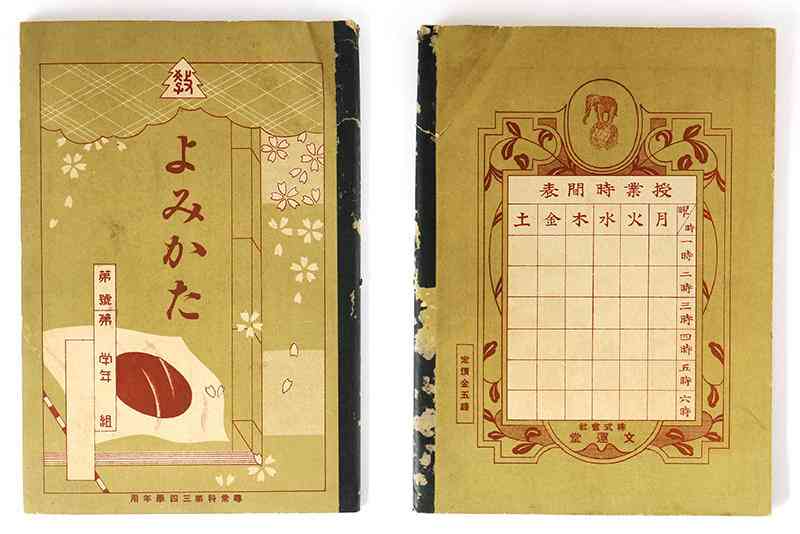 教
よみかた
第 號
第 学年 組
尋常科第三四學年用
授業時間表
曜/時 月 火 水 木 金 土
一時
二時
三時
四時
五時
六時
定價金五錢
株式會社
文運堂